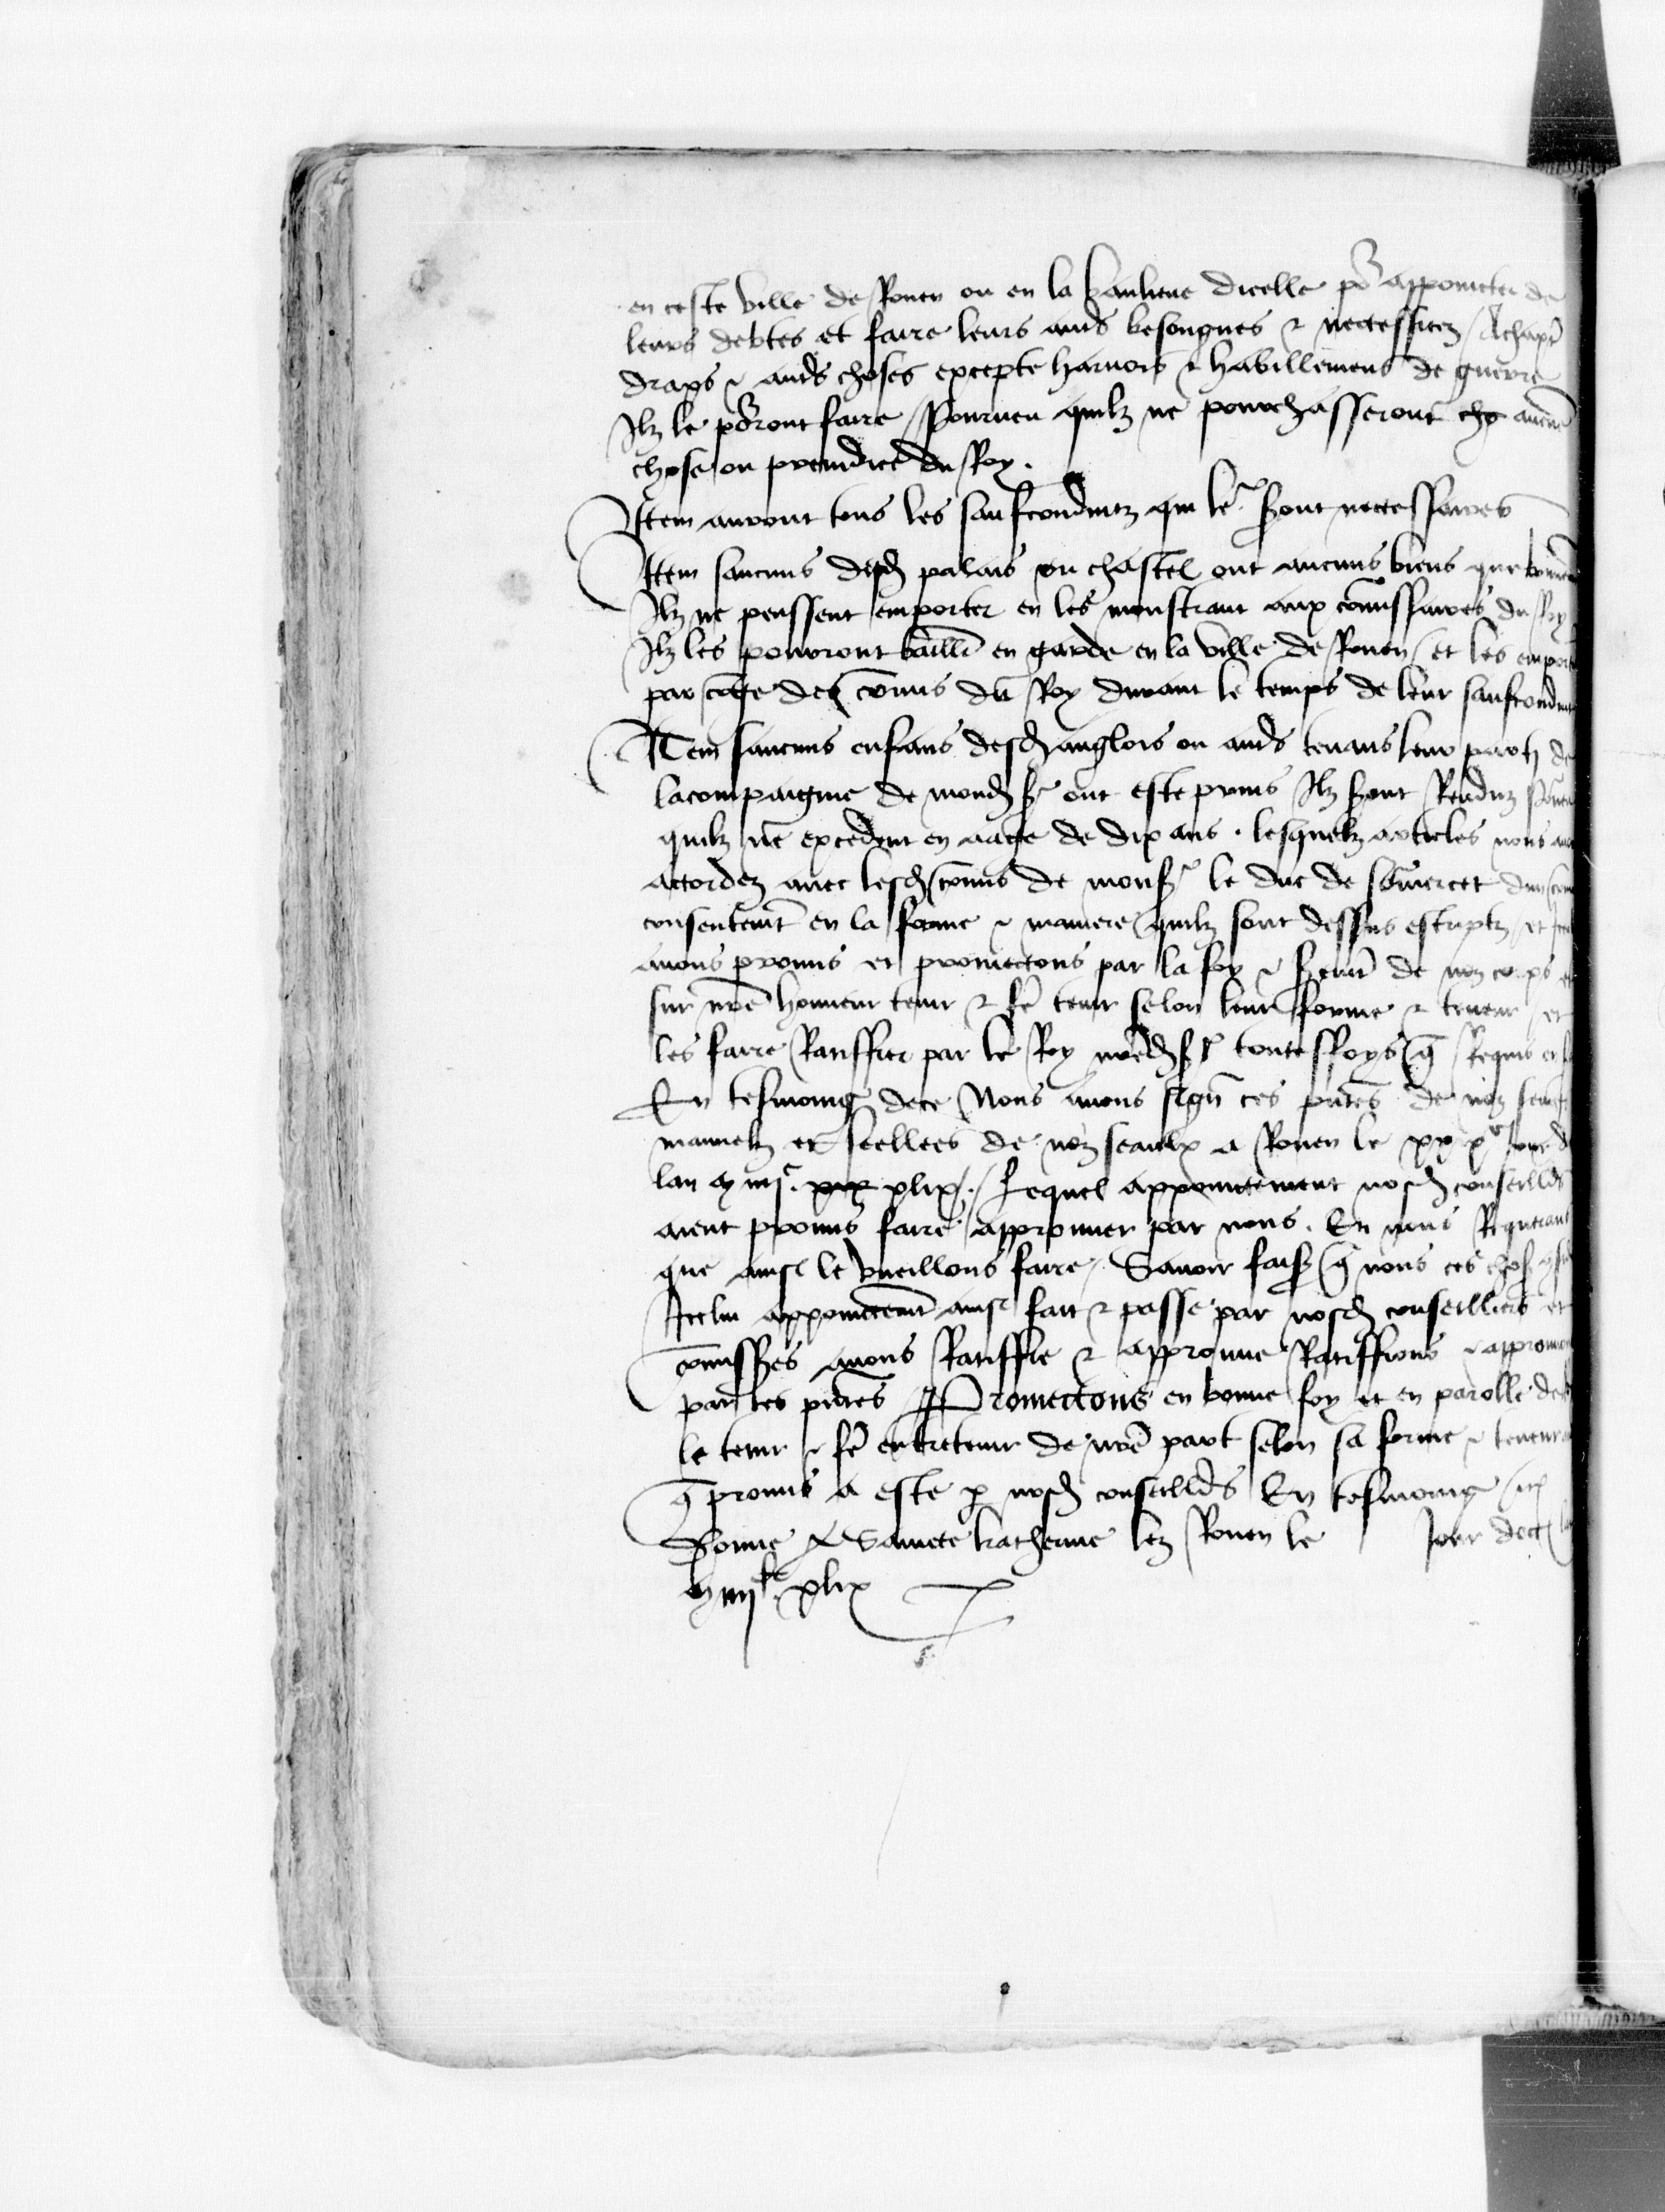 en ceste ville de Rouen ou en la banlieue dicelle pr appointer de
leurs debtes et faire leurs auts besongnes & necessitez Achapt
draps & auts choses excepte harnois & habillemens de guerre
Ilz le porront faire Pourveu quilz ne pourchasseront aucune
chose ou preiudice du Roy.
Item auront tous les saufconduitz qui le^r seront necessaires
Item saucuns desd palais ou chastel ont aucuns biens que
Ilz ne peussent emporter en les monstrant aux commissaires du Roy
Ilz les pourront baillr en garde en la ville de Rouen et les emport
par conge des commis du Roy durant le temps de leur saufconduit
Item saucuns enfans desd anglois ou auts tenans leur party de
lacompaignie de mond sr ont este prins Ilz seront Renduz Pourveu
quilz ne excedent en aage de dix ans. lesquelz articles nous avons
accordez avec lesd commis de monsr le duc de Sommercet dun commun
consentemt en la forme & maniere quilz sont dessus escriptz et
avons promis et promectons par la foy & sermt de noz corps et
sur nre honneur tenir & fe tenir selon leur forme & teneur et
les faire Ratiffier par le Roy nred sr toutesfoys q Requis en
En tesmoing dece Nous avons signe ces pntes de noz seings
manuelz et seellees de noz seaulx a Rouen le xxix^e jour
lan m iiij^c. xlix. Lequel appointement nosd conseillrs
aient promis faire approuver par nous. En nous Requerant
que ainsi le vueillons faire Savoir faisons q nous ces choses
Icelui appointemt ainsi fait & passe par nosd conseilliers et
commisses avons Ratiffie & approuve Ratiffions & approuvons
par ces pntes Promectons en bonne foy et en parolle de
le tenir & fe entretenir de nre part selon sa forme & teneur
q promis a este p nosd conseillrs En tesmoing
Donne a Saincte katherine lez Rouen le jour doct
m iiij^c. xlix